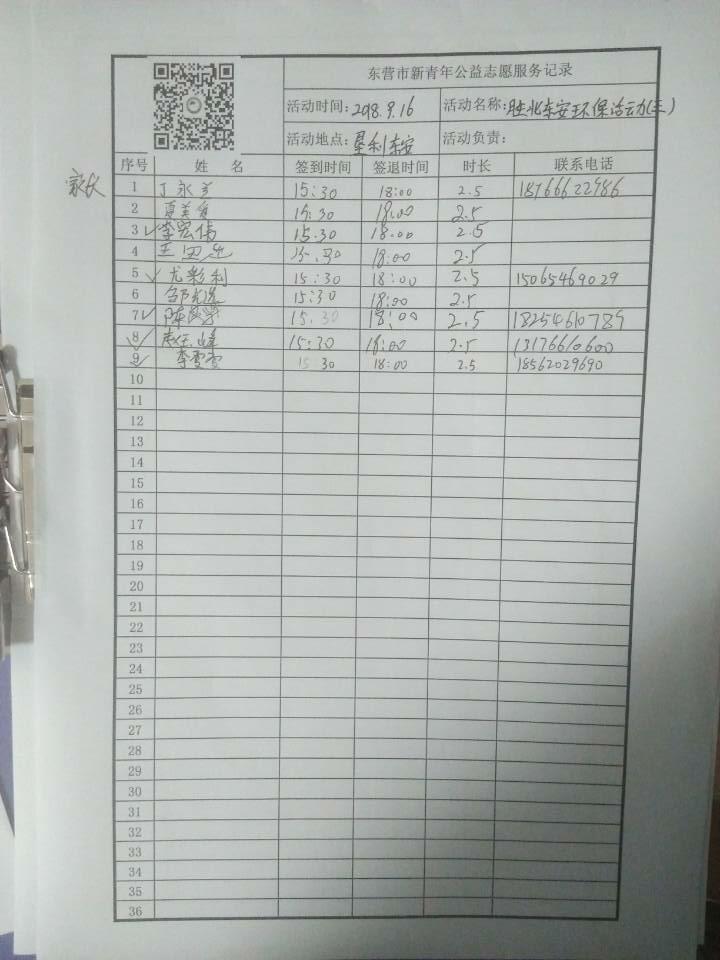 东营市新青年公益志愿服务记录
活动时间: 2018.9.16 活动名称: 胜北东安环保活动(三)
活动地点: 垦利东安 活动负责:
序号 姓 名 签到时间 签退时间 时长 联系电话
家长 1 丁永 15:30 18:00 2.5 18766622986
2 15:30 18:00 2.5
3 李宏伟 15:30 18:00 2.5
4 王 15:30 18:00 2.5
5 尤彩利 15:30 18:00 2.5 15065469029
6 邹 15:30 18:00 2.5
7 陈 15:30 18:00 2.5 18254610789
8 赵玉峰 15:30 18:00 2.5 13176610600
9 李雪雪 15:30 18:00 2.5 18562029690
10
11
12
13
14
15
16
17
18
19
20
21
22
23
24
25
26
27
28
29
30
31
32
33
34
35
36